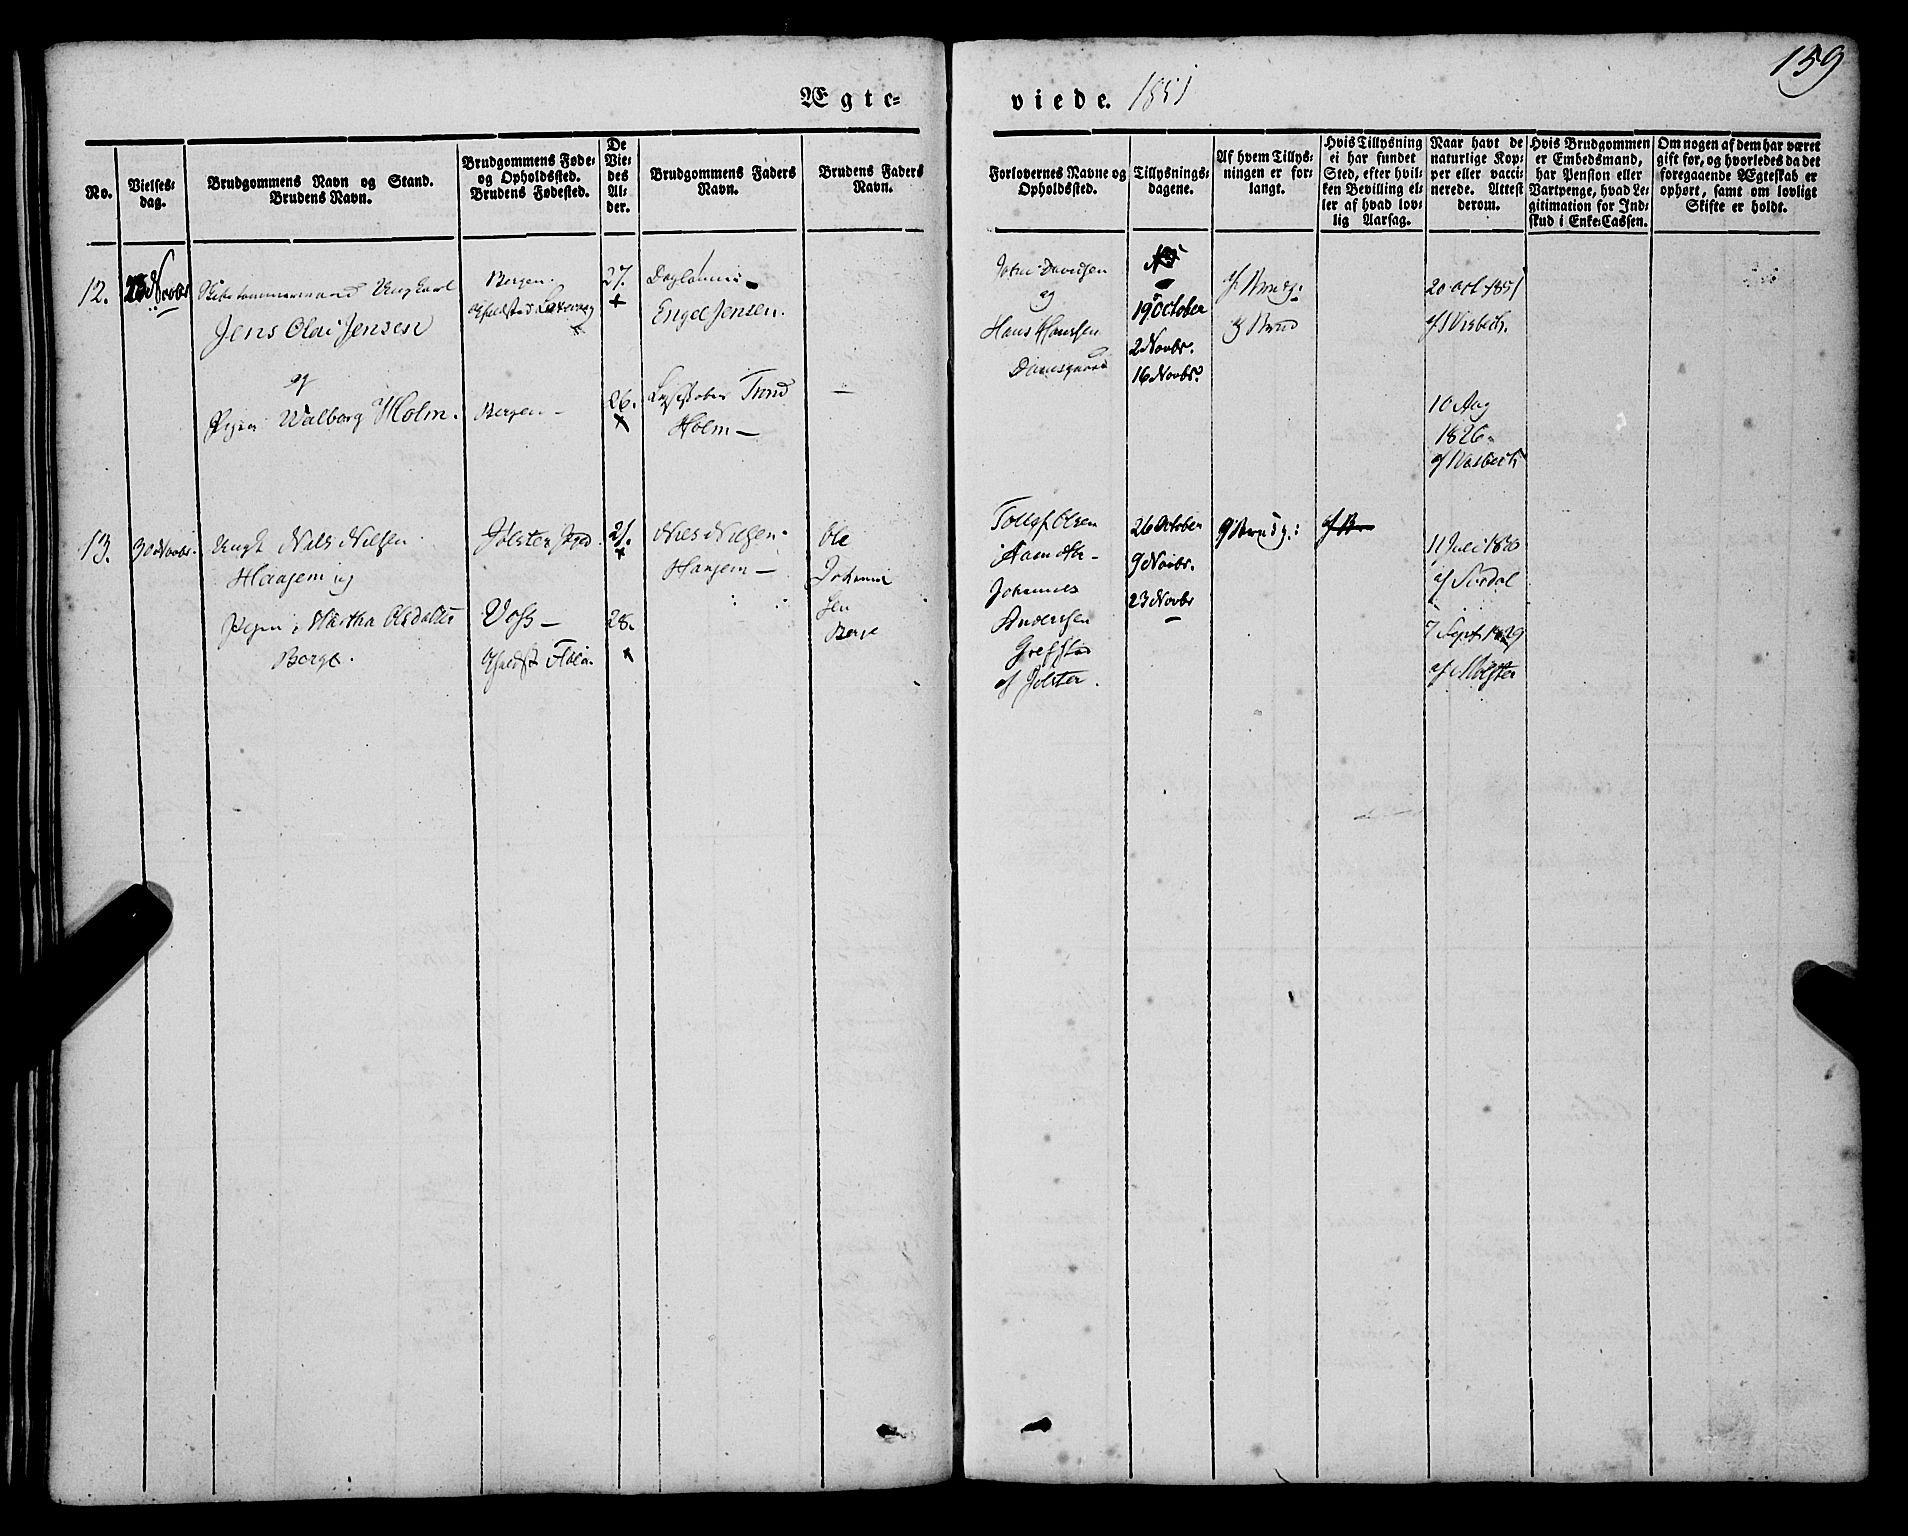 159
Ægte-
viede. 1851
No.
Vielses-
dag.
Brudgommens Navn og Stand.
Brudens Navn.
Brudgommens Føde-
og Opholdssted.
Brudens Fødested.
De
Vie-
des
Al-
der.
Brudgommens Faders
Navn.
Brudens Faders
Navn.
Forlovernes Navne og
Opholdssted.
Tillysnings-
dagene.
Af hvem Tillys-
ningen er for-
langt.
Hvis Tillysning
ei har fundet
Sted, efter hvil-
ken Bevilling el-
ler af hvad lov-
lig Aarsag.
Naar havt de
naturlige Kop-
per eller vacci-
nerede. Attest
derom.
Hvis Brudgommen
er Embedsmand,
har Pension eller
Vartpenge, hvad Le-
gitimation for Ind-
skud i Enke-Cassen.
Om nogen af dem har været
gift for, og hvorledes da det
foregaaende Ægteskab er
ophørt, samt om lovligt
Skifte er holdt.
12.
Novbr
Ungkarl
Jens Olai Jensen
og
Pigen Walborg Holm.
Bergen.
Bergen -
27.
+
26.
+
Engel Jensen.
Trond
Holm -
-
John Davidsen
og
Hans Hansen
Damsgaard
19 October
2 Novbr.
16 Novbr.
af Brudg:
og Brud
20 Oct 1851
10 Aug
1826
13.
30 Novbr.
Ungk Nils Nilsen
Haagem og
Pigen Martha Olsdatter
Berge.
Jølster
Voss -
21.
+
28.
+
Nils Nilsen
Haagem -
Ole
Johanne
sen
Berge
Tollef Olsen
Johannes
Andersen
af Jølster.
26 October
9 Novbr.
23 Novbr
af Brudg:
11 Juli
7 Sept 1829
af Mølster